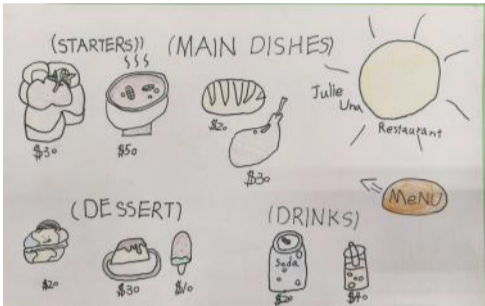 (STARTERS))
(MAIN DISHES)
Julie
Una
Restaurant
$30
$50
$20
$30
MeNU
(DESSERT)
(DRINKS)
Soda
$20
$30
$10
$20
$40